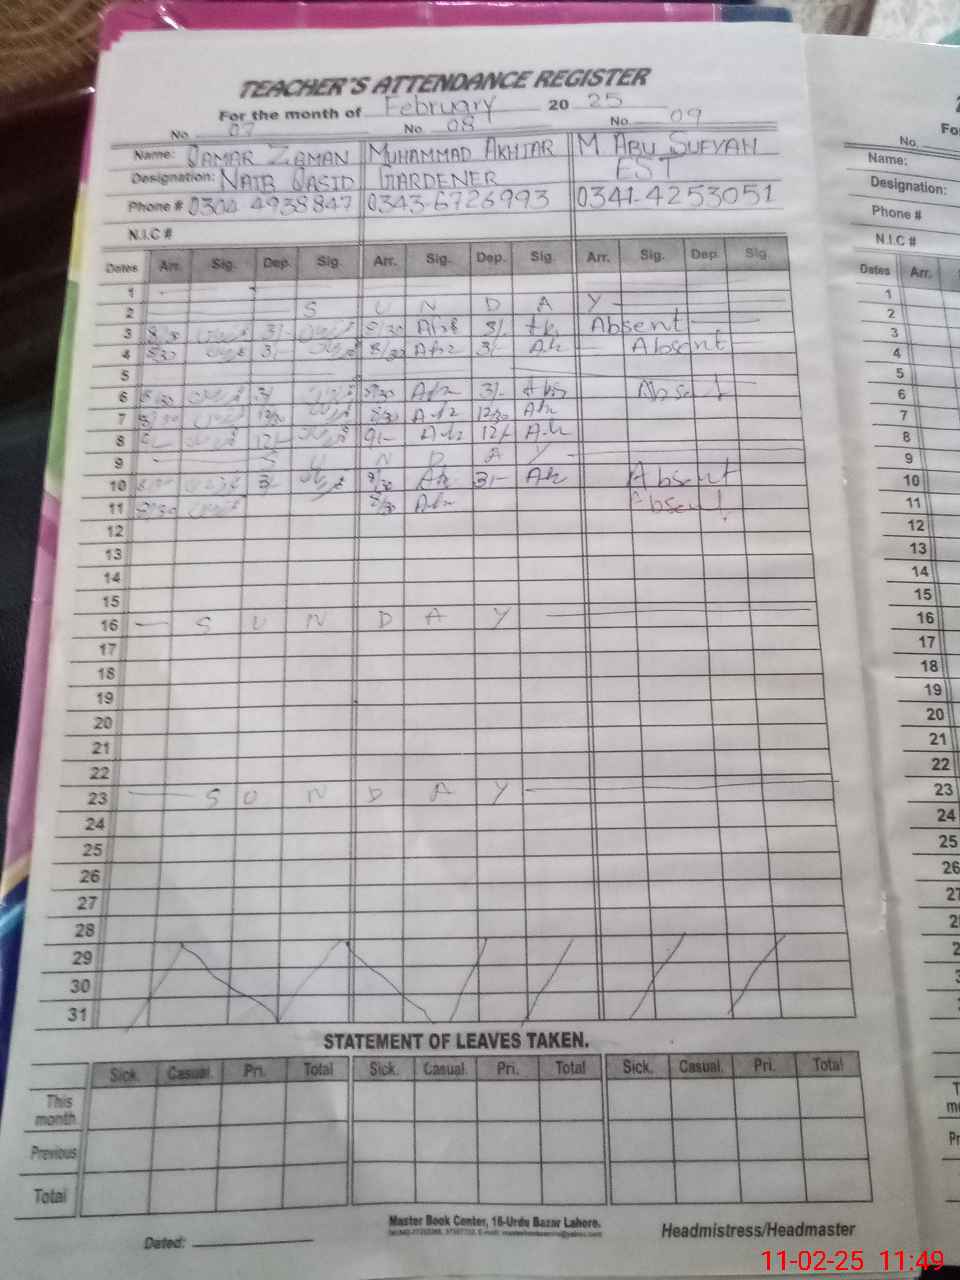 TEACHER'S ATTENDANCE REGISTER
For the month of February 20 25
No. 07 No. 08 No. 09
Name: QAMAR ZAMAN MUHAMMAD AKHTAR M. ABU SUFYAN
Designation: NAIB QASID GARDENER EST
Phone # 0304 4938847 0343-6726993 0341-4253051
N.I.C #
Dates Arr. Sig. Dep. Sig. Arr. Sig. Dep. Sig. Arr. Sig. Dep. Sig.
1
2 S U N D A Y
3 8/30 3/- 8/30 3/- Absent
4 8/30 3/- 8/30 3/- Absent
5
6 8/30 3/ 8/30 3/- Absent
7 8/30 12/30 8/30 12/30
8 9/- 12/- 9/- 12/-
9 S U N D A Y
10 8/30 3/- 8/30 3/- Absent
11 8/30 8/30 Absent
12
13
14
15
16 S U N D A Y
17
18
19
20
21
22
23 S U N D A Y
24
25
26
27
28
29
30
31
STATEMENT OF LEAVES TAKEN.
Sick. Casual. Pri. Total Sick. Casual. Pri. Total Sick. Casual. Pri. Total
This month
Previous
Total
Master Book Center, 16-Urdu Bazar Lahore.
Dated: Headmistress/Headmaster
No.
Name:
Designation:
Phone #
N.I.C #
Dates Arr.
1
2
3
4
5
6
7
8
9
10
11
12
13
14
15
16
17
18
19
20
21
22
23
24
25
26
11-02-25 11:49